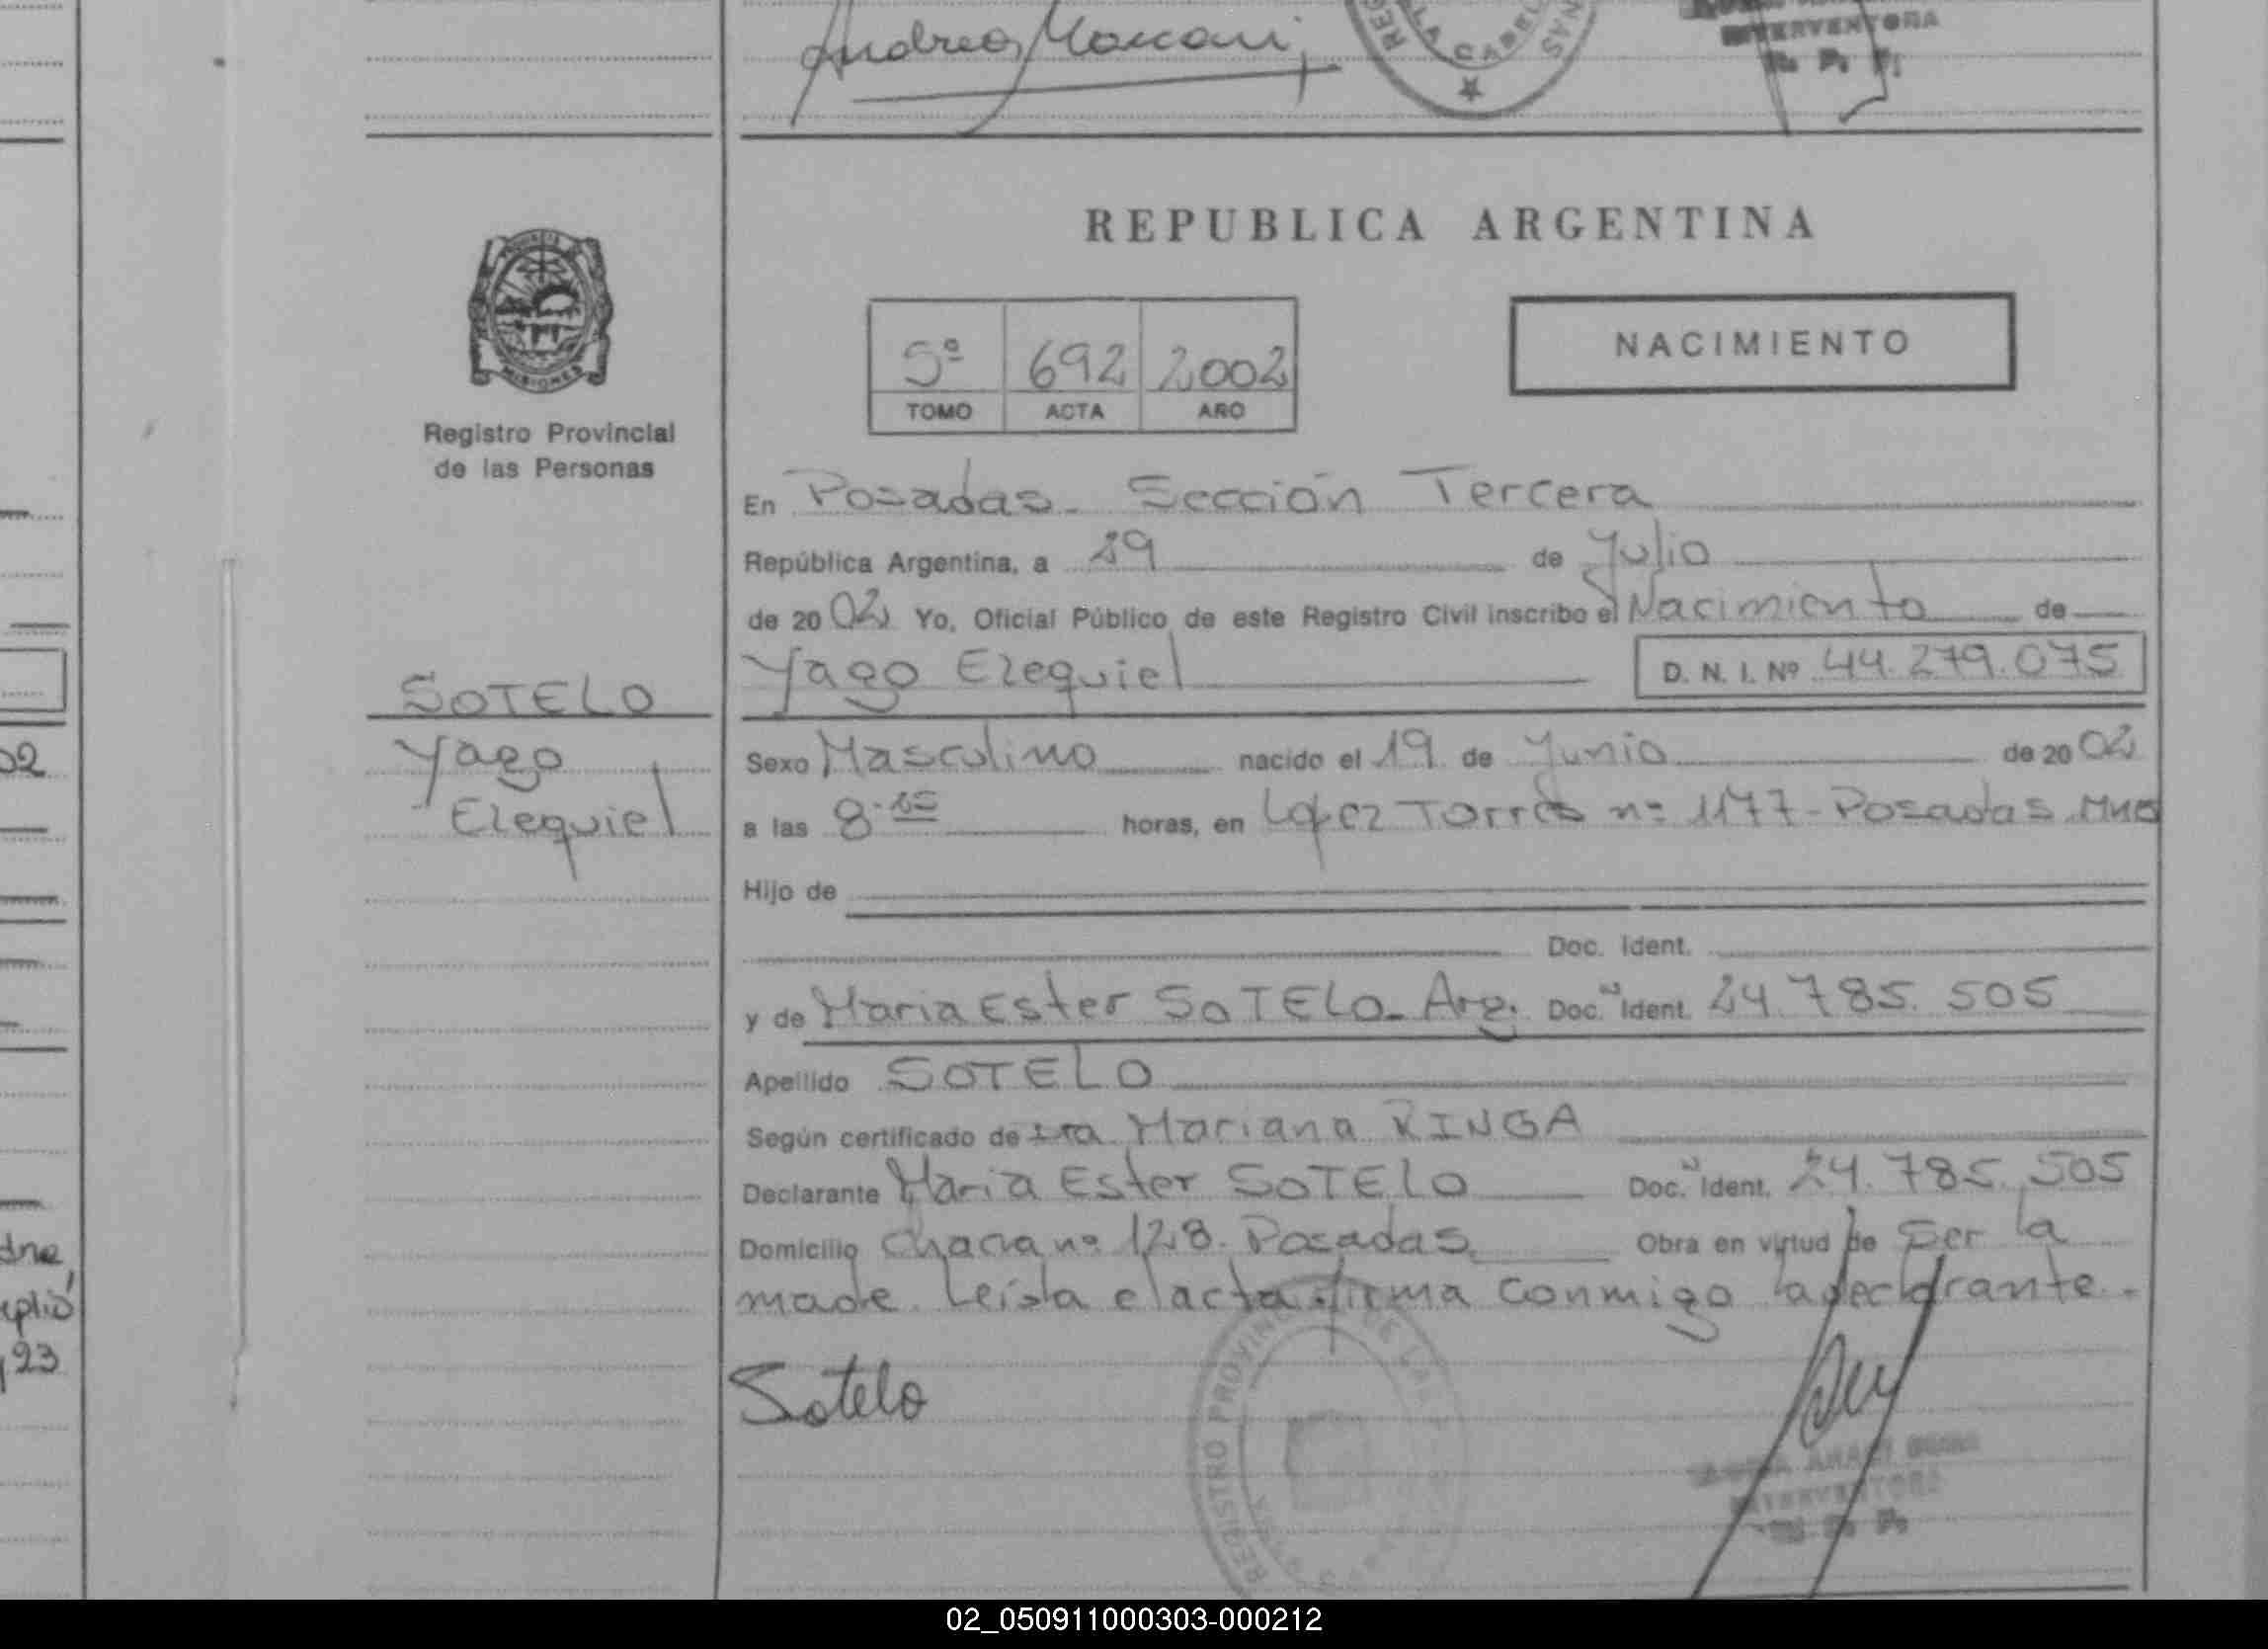 Andrea Marconi
INTERVENTORA
R. P. P.
REPUBLICA ARGENTINA
MISIONES
5º 692 2002
TOMO ACTA AÑO
NACIMIENTO
Registro Provincial
de las Personas
En Posadas - Sección Tercera
República Argentina, a 29 de Julio
de 2002 Yo, Oficial Público de este Registro Civil inscribo el Nacimiento de
SOTELO
Yago Ezequiel D. N. I. Nº 44.279.075
Yago
Ezequiel
Sexo Masculino nacido el 19 de Junio de 2002
a las 8 horas, en López Torres nº 1177 - Posadas Mnes
Hijo de
Doc. Ident.
y de Maria Ester SOTELO - Arg. Doc. N Ident. 24.785.505
Apellido SOTELO
Según certificado de Mariana RINGA
Declarante Maria Ester SOTELO Doc. N Ident. 24.785.505
Domicilio Chacra nº 128 - Posadas Obra en virtud de ser la
madre. Leída el acta firma conmigo la declarante.
Sotelo
REGISTRO PROVINCIAL DE LAS
INTERVENTORA
02_050911000303-000212